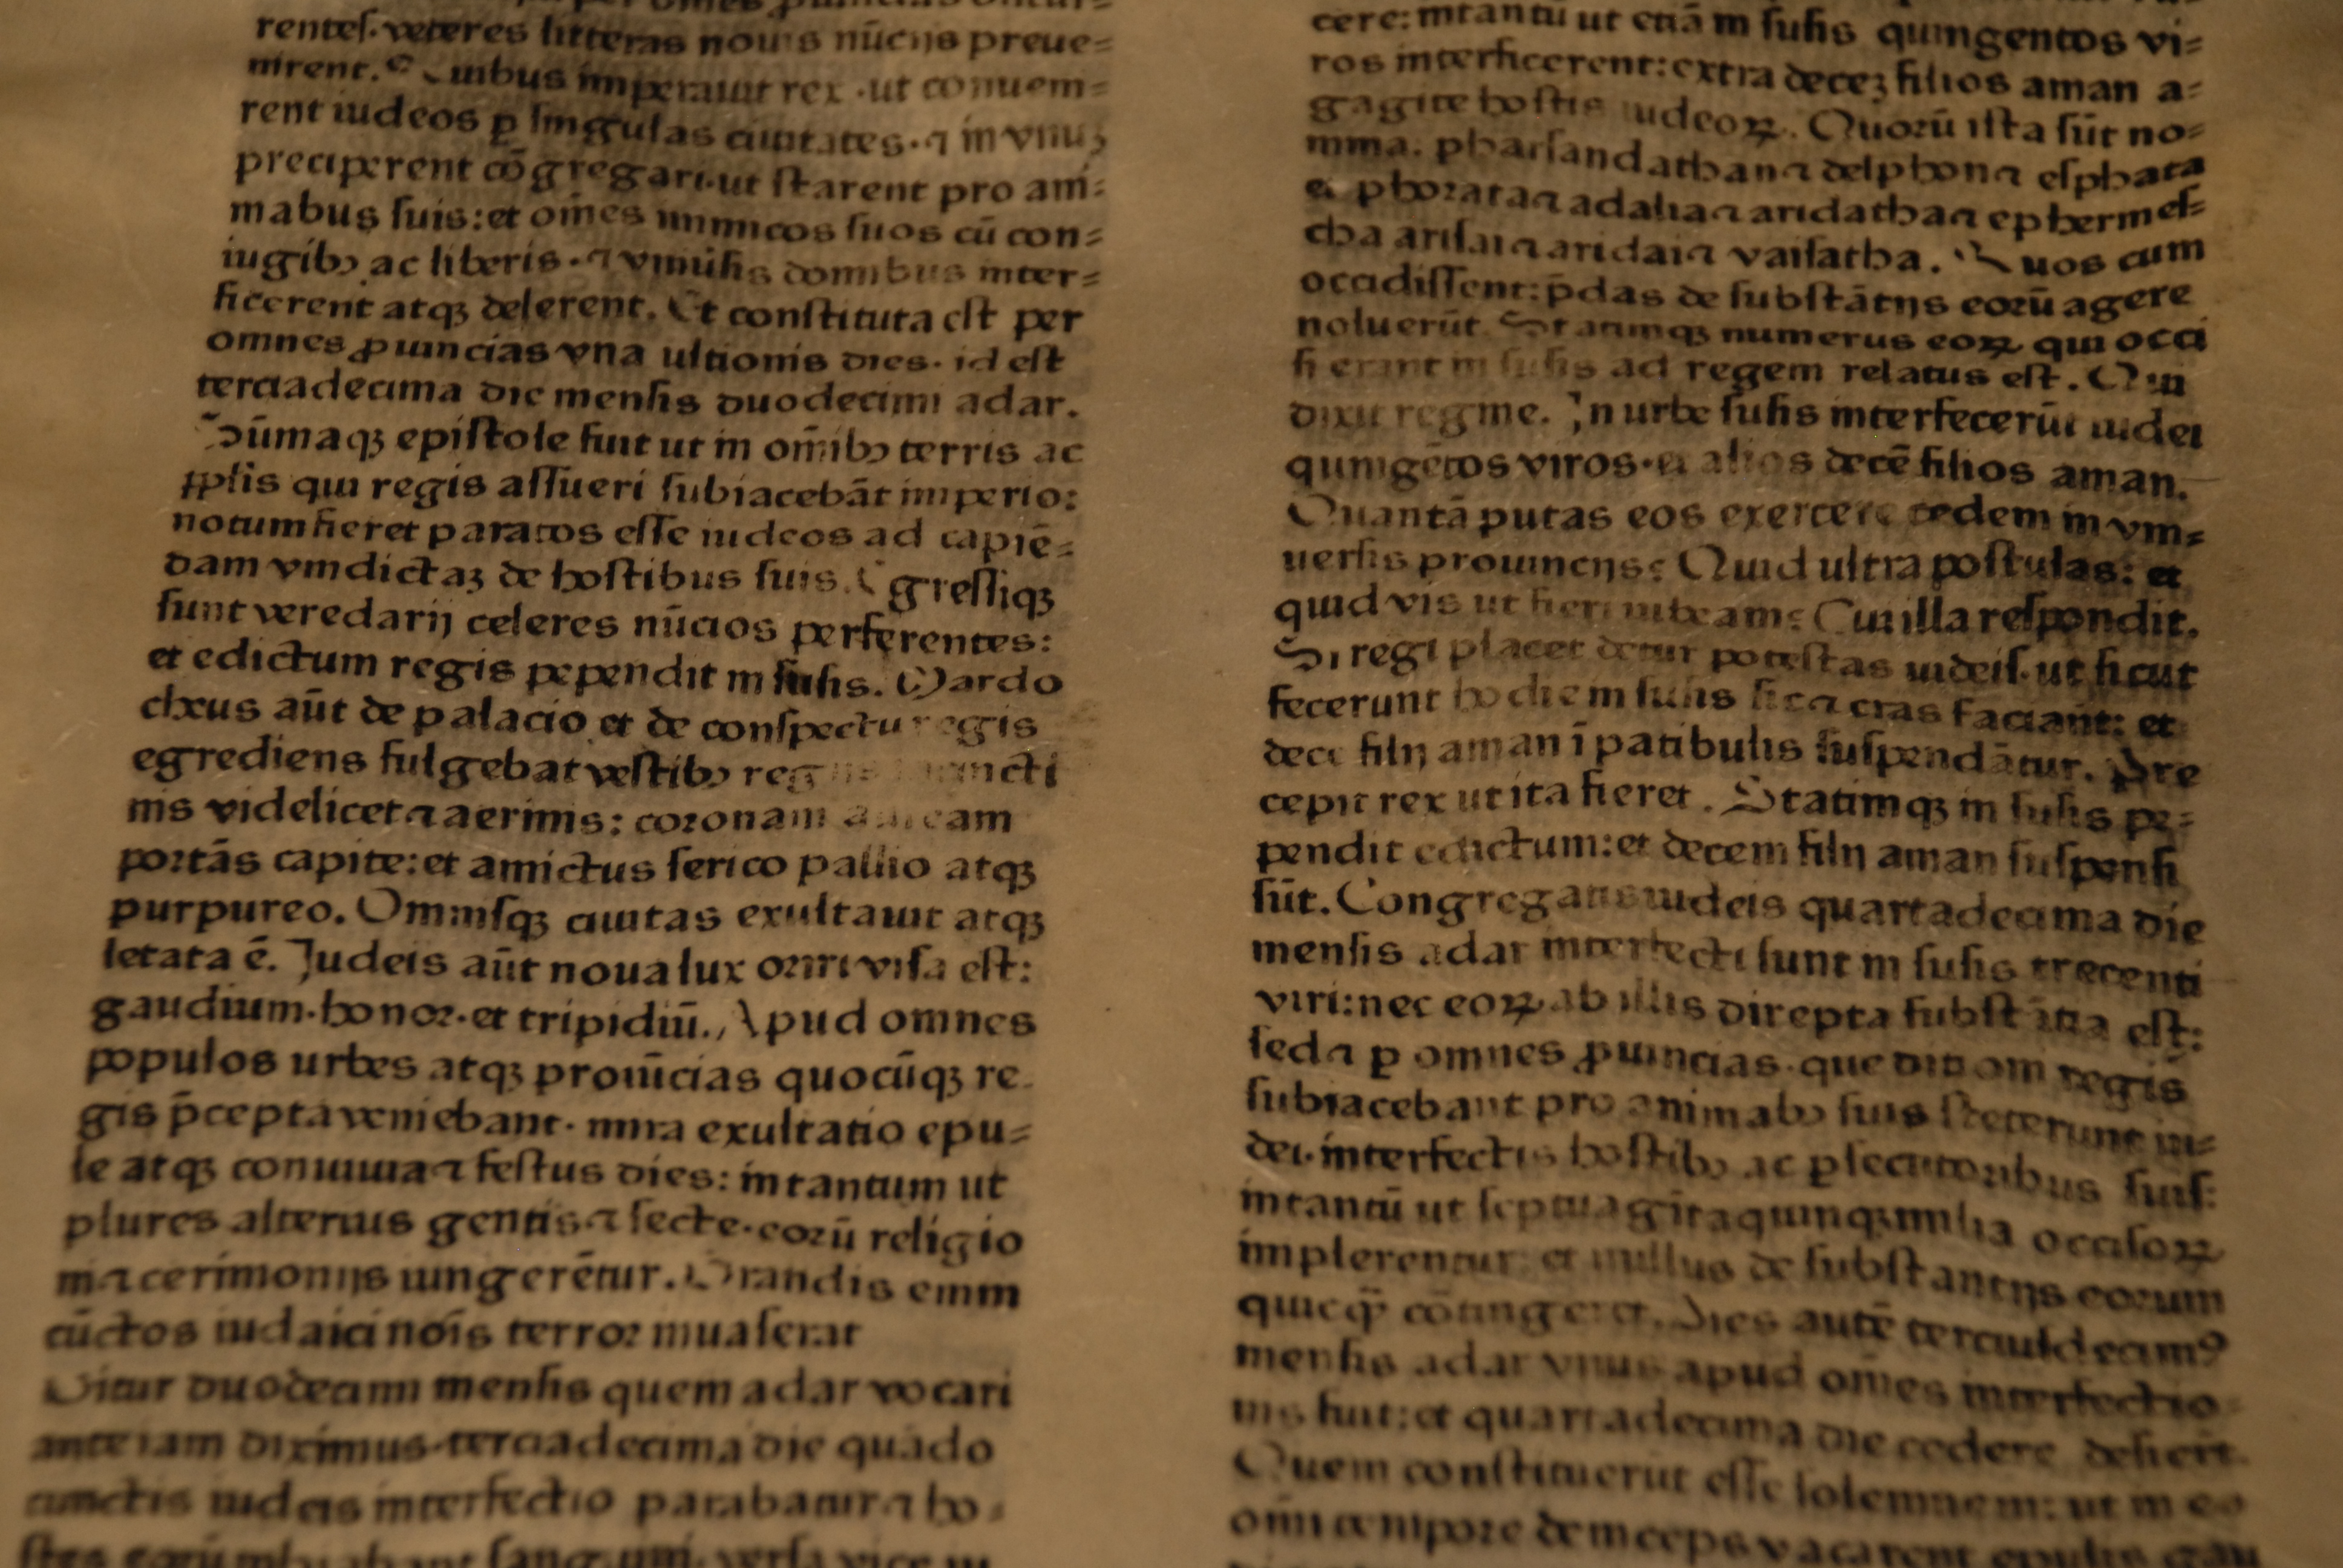 rentes·veteres litteras nouis nūcijs preue=
nirent. Quibus imperauit rex·ut conuem=
rent iudeos ꝑ singulas ciuitates·⁊ in vnuꝫ
preciperent cōgregari·ut starent pro ani=
mabus suis:et om̄es inimicos suos cū con=
iugibꝰ ac liberis·⁊ vniūsis domibus inter=
ficerent atqꝫ delerent. Et constituta est per
omnes ꝓuincias vna ultionis dies·id est
terciadecima die mensis duodecimi adar.
Sūmaqꝫ epistole fuit ut in om̄ibꝰ terris ac
pp̄lis qui regis assueri subiacebāt imperio:
notum fieret paratos esse iudeos ad capiē=
dam vindictaꝫ de hostibus suis. Egressiqꝫ
sunt veredarij celeres nūcios perferentes:
et edictum regis pependit in susis. Mardo
cheus aūt de palacio et de conspectu regis
egrediens fulgebat vestibꝰ regijs iacincti
nis videlicet ⁊ aerinis: coronam auream
portās capite:et amictus serico pallio atqꝫ
purpureo. Omnisqꝫ ciuitas exultauit atqꝫ
letata ē. Judeis aūt noua lux oriri visa est:
gaudium·honor·et tripidiū. Apud omnes
populos urbes atqꝫ prouīcias quocūqꝫ re
gis p̄cepta veniebant·mira exultatio epu=
le atqꝫ conuiuia ⁊ festus dies: intantum ut
plures alterius gentis ⁊ secte·eorū religio
ni ⁊ cerimonijs iungerētur. Grandis enim
cūctos iudaici nōis terror inuaserat
Gitur duodecimi mensis quem adar vocari
ante iam diximus·terciadecima die quādo
cunctis iudeis interfectio parabatur ⁊ ho=
stes eorū sanguini·versa vice iu
cere:intantū ut etiā in susis quingentos vi=
ros interficerent:extra deceꝫ filios aman a=
gagite hostis iudeoꝝ. Quorū ista sūt no=
mina. pharsandatha ⁊ delphon ⁊ esphata
et phorata ⁊ adalia ⁊ aridatha ⁊ ephermes=
cha arisai ⁊ aridai ⁊ vaisatha. Quos cum
occidissent:p̄das de substātijs eorū agere
noluerūt. Statimqꝫ numerus eoꝝ qui occi
si erant in susis ad regem relatus est. Qui
dixit regine. In urbe susis interfecerūt iudei
quingētos viros·et alios decē filios aman.
Quantā putas eos exercere cedem in vni=
uersis prouincijs? Quid ultra postulas: et
quid vis ut fieri iubeam? Cui illa respondit.
Si regi placet detur potestas iudeis·ut sicut
fecerunt hodie in susis sic ⁊ cras faciant: et
decē filij aman ī patibulis suspendātur. Pre
cepit rex ut ita fieret. Statimqꝫ in susis pe=
pendit edictum:et decem filij aman suspensi
sūt. Congregatis iudeis quartadecima die
mensis adar interfecti sunt in susis trecenti
viri:nec eoꝝ ab illis direpta substātia est:
sed ⁊ ꝑ omnes ꝓuincias·que dicioni regis
subiacebant pro animabꝰ suis steterunt iu=
dei·interfectis hostibꝰ ac ꝑsecutoribus suis:
intantū ut septuagītaquinqꝫ milia occisoꝝ
implerentur: et nullus de substantijs eorum
quicq̄ cōtingeret. Dies autē terciusdecimꝰ
mensis adar vnus apud om̄es interfectio
nis fuit:et quartadecima die cedere desierūt.
Quem constituerūt esse solemnem: ut in eo
om̄i tempore deinceps vacarent epulis gau